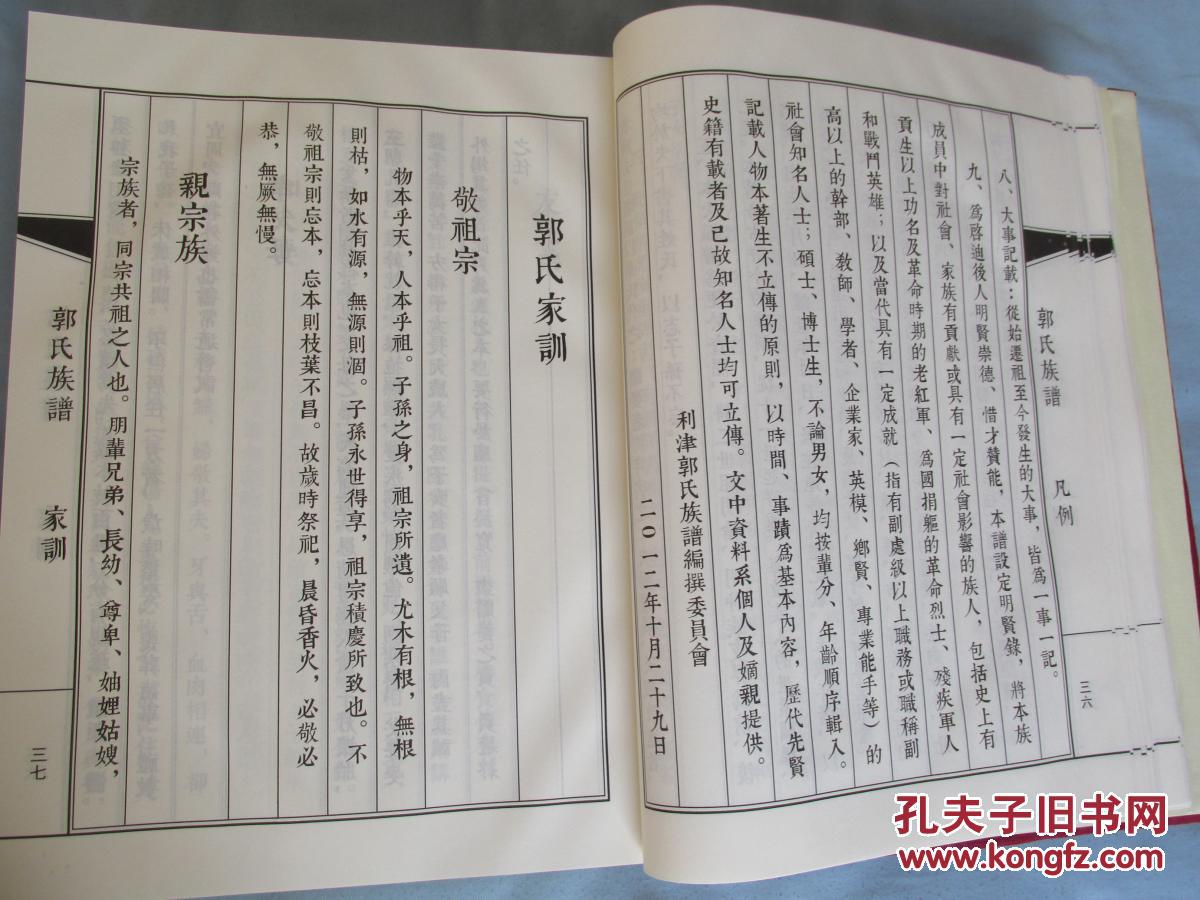 郭氏族譜
凡例
三六
八、大事記載：從始遷祖至今發生的大事，皆為一事一記。
九、爲啓迪後人明賢崇德、惜才贊能，本譜設定明賢錄，將本族
成員中對社會、家族有貢獻或具有一定社會影響的族人，包括史上有
貢生以上功名及革命時期的老紅軍、爲國捐軀的革命烈士、殘疾軍人
和戰鬥英雄；以及當代具有一定成就（指有副處級以上職務或職稱副
高以上的幹部、教師、學者、企業家、英模、鄉賢、專業能手等）的
社會知名人士；碩士、博士生，不論男女，均按輩分、年齡順序輯入。
記載人物本著生不立傳的原則，以時間、事蹟爲基本內容，歷代先賢
史籍有載者及已故知名人士均可立傳。文中資料系個人及嫡親提供。
利津郭氏族譜編撰委員會
二〇一二年十月二十九日
郭氏家訓
敬祖宗
物本乎天，人本乎祖。子孫之身，祖宗所遺。尤木有根，無根
則枯，如水有源，無源則涸。子孫永世得享，祖宗積慶所致也。不
敬祖宗則忘本，忘本則枝葉不昌。故歲時祭祀，晨昏香火，必敬必
恭，無厥無慢。
親宗族
宗族者，同宗共祖之人也。朋輩兄弟、長幼、尊卑、妯娌姑嫂，
郭氏族譜
家訓
三七
孔夫子旧书网
www.kongfz.com